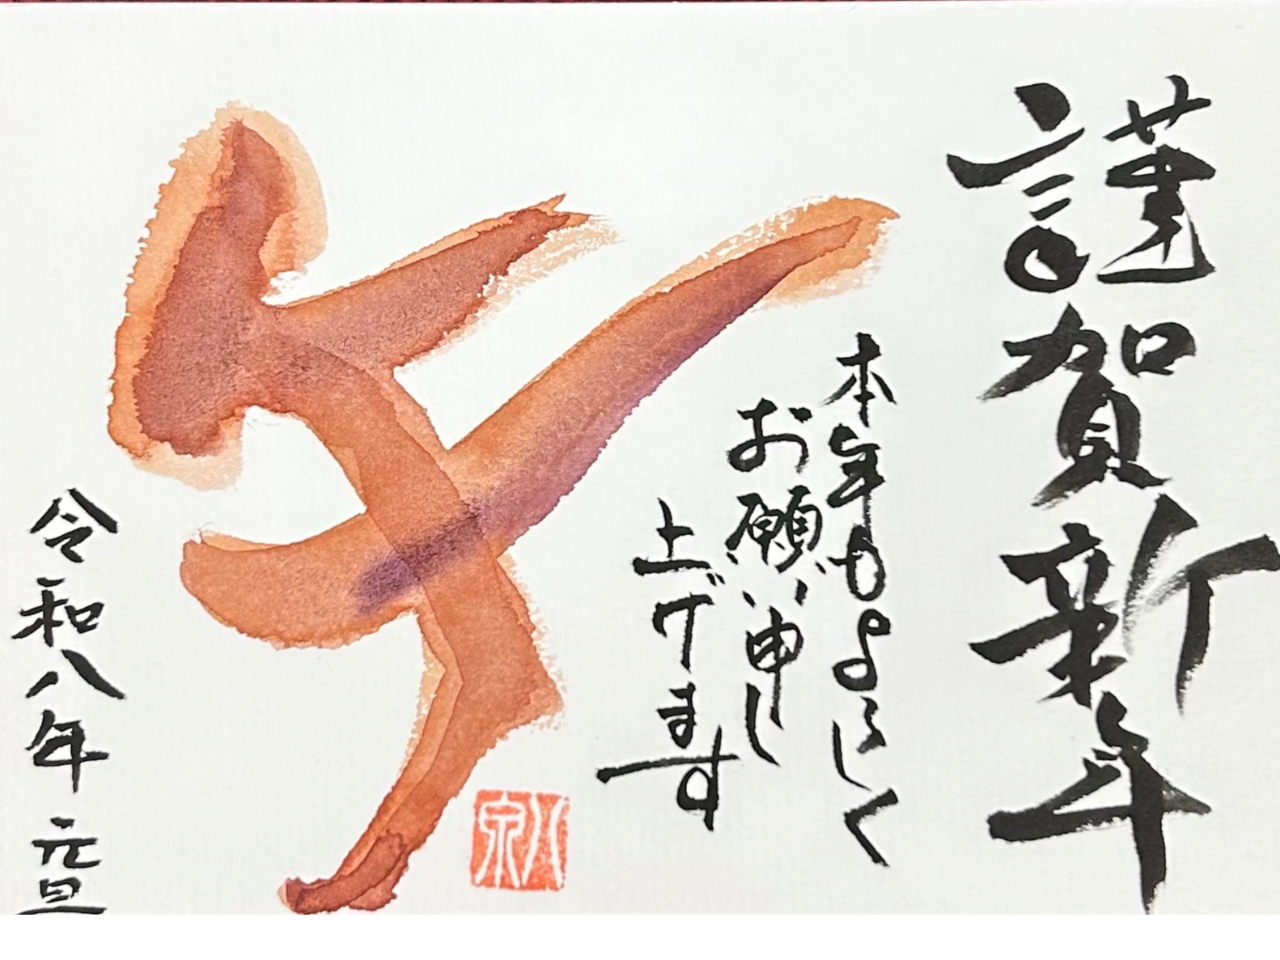 謹賀新年
本年もよろしく
お願い申し
上げます
午
令和八年 元旦